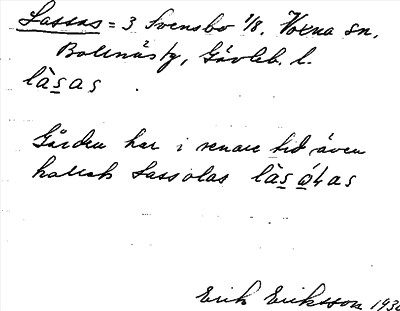 Lassas = 3 Svensbo 1/8. Voxna sn,
Bollnäs tg, Gävleb. l.
là̱sas
Gården har i senare tid även
kallats Lassolas
Erik Eriksson 1930